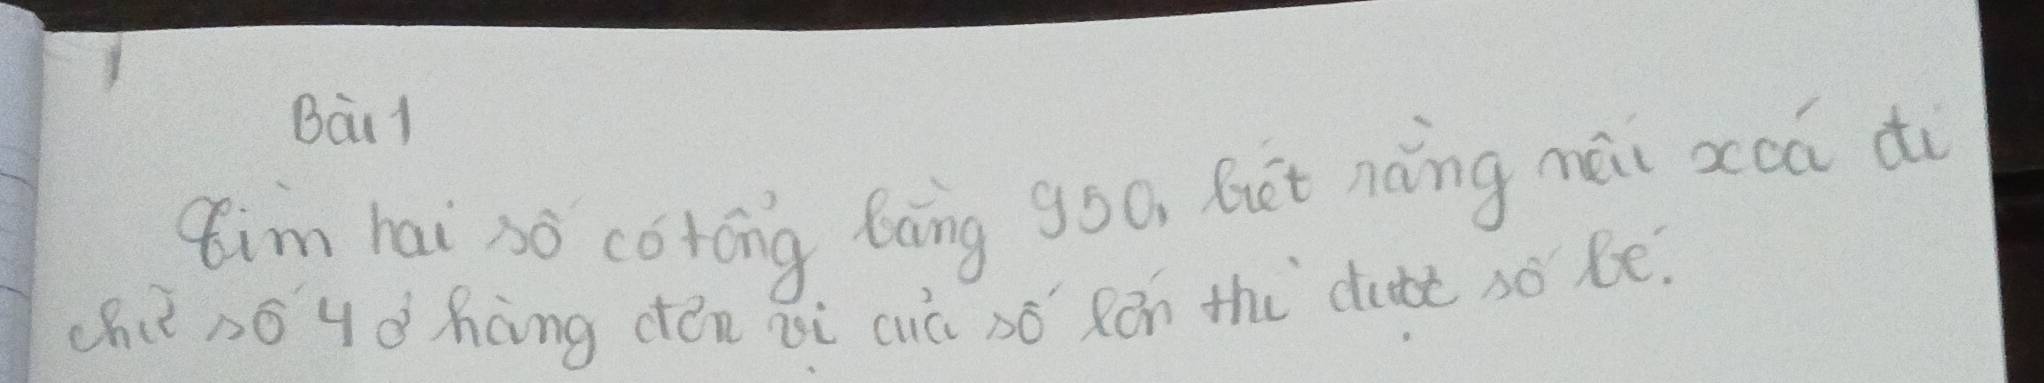 Bài 1
Tìm hai số có tổng bằng 950, biết rằng nếu xoá đi
chữ số 4 ở hàng đơn vị của số lớn thì được số bé.